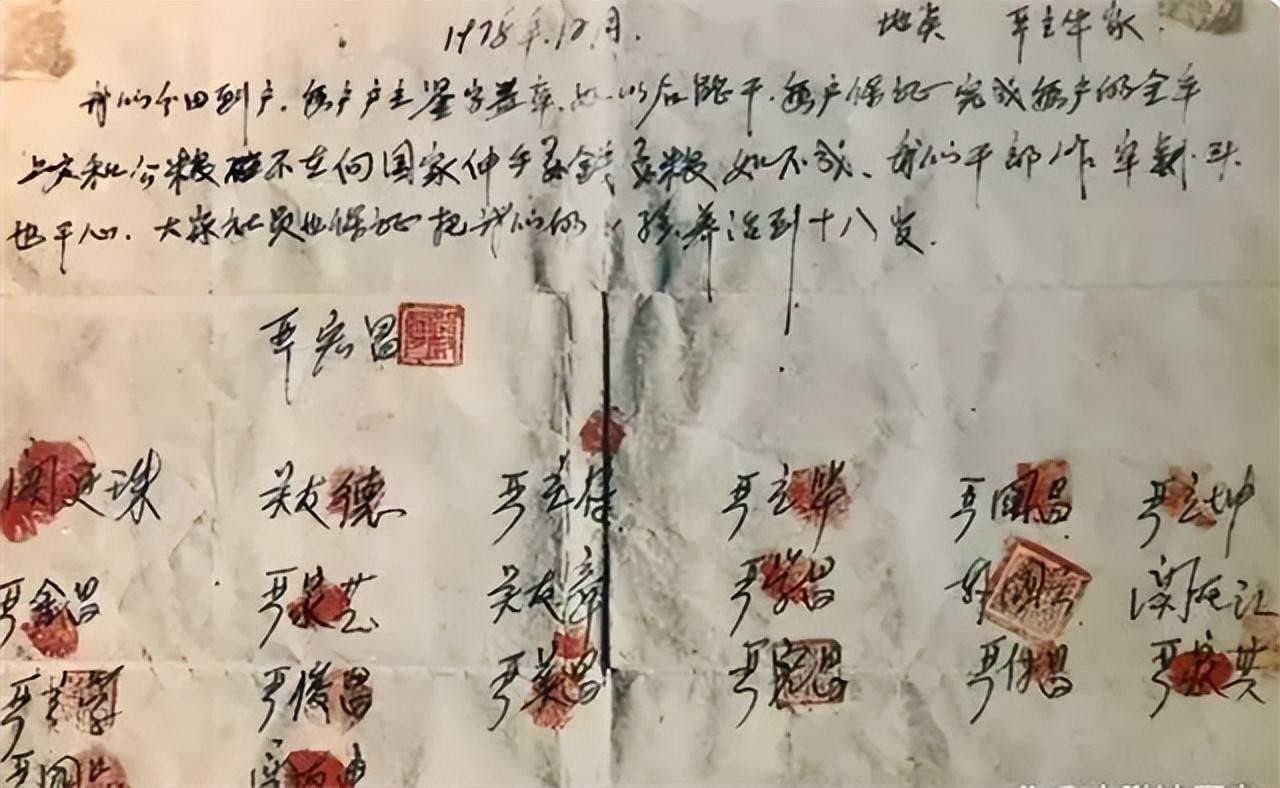 1978年12月. 地点 严立华家.
我们分田到户.每户户主签字盖章.如以后能干.每户保证完成每户的全年
上交和公粮不在向国家伸手要钱要粮如不成、我们干部作牢剎头
也干心.大家社员也保证把我们的小孩养活到十八岁.
严宏昌
关廷珠 关友德 严立符 严立华 严国昌 严立坤
严金昌 严家芝 关友章 严学昌 韩国云 关友江
严立学 严俊昌 严美昌 严宏昌 严付昌 严家其
严国品 关友申